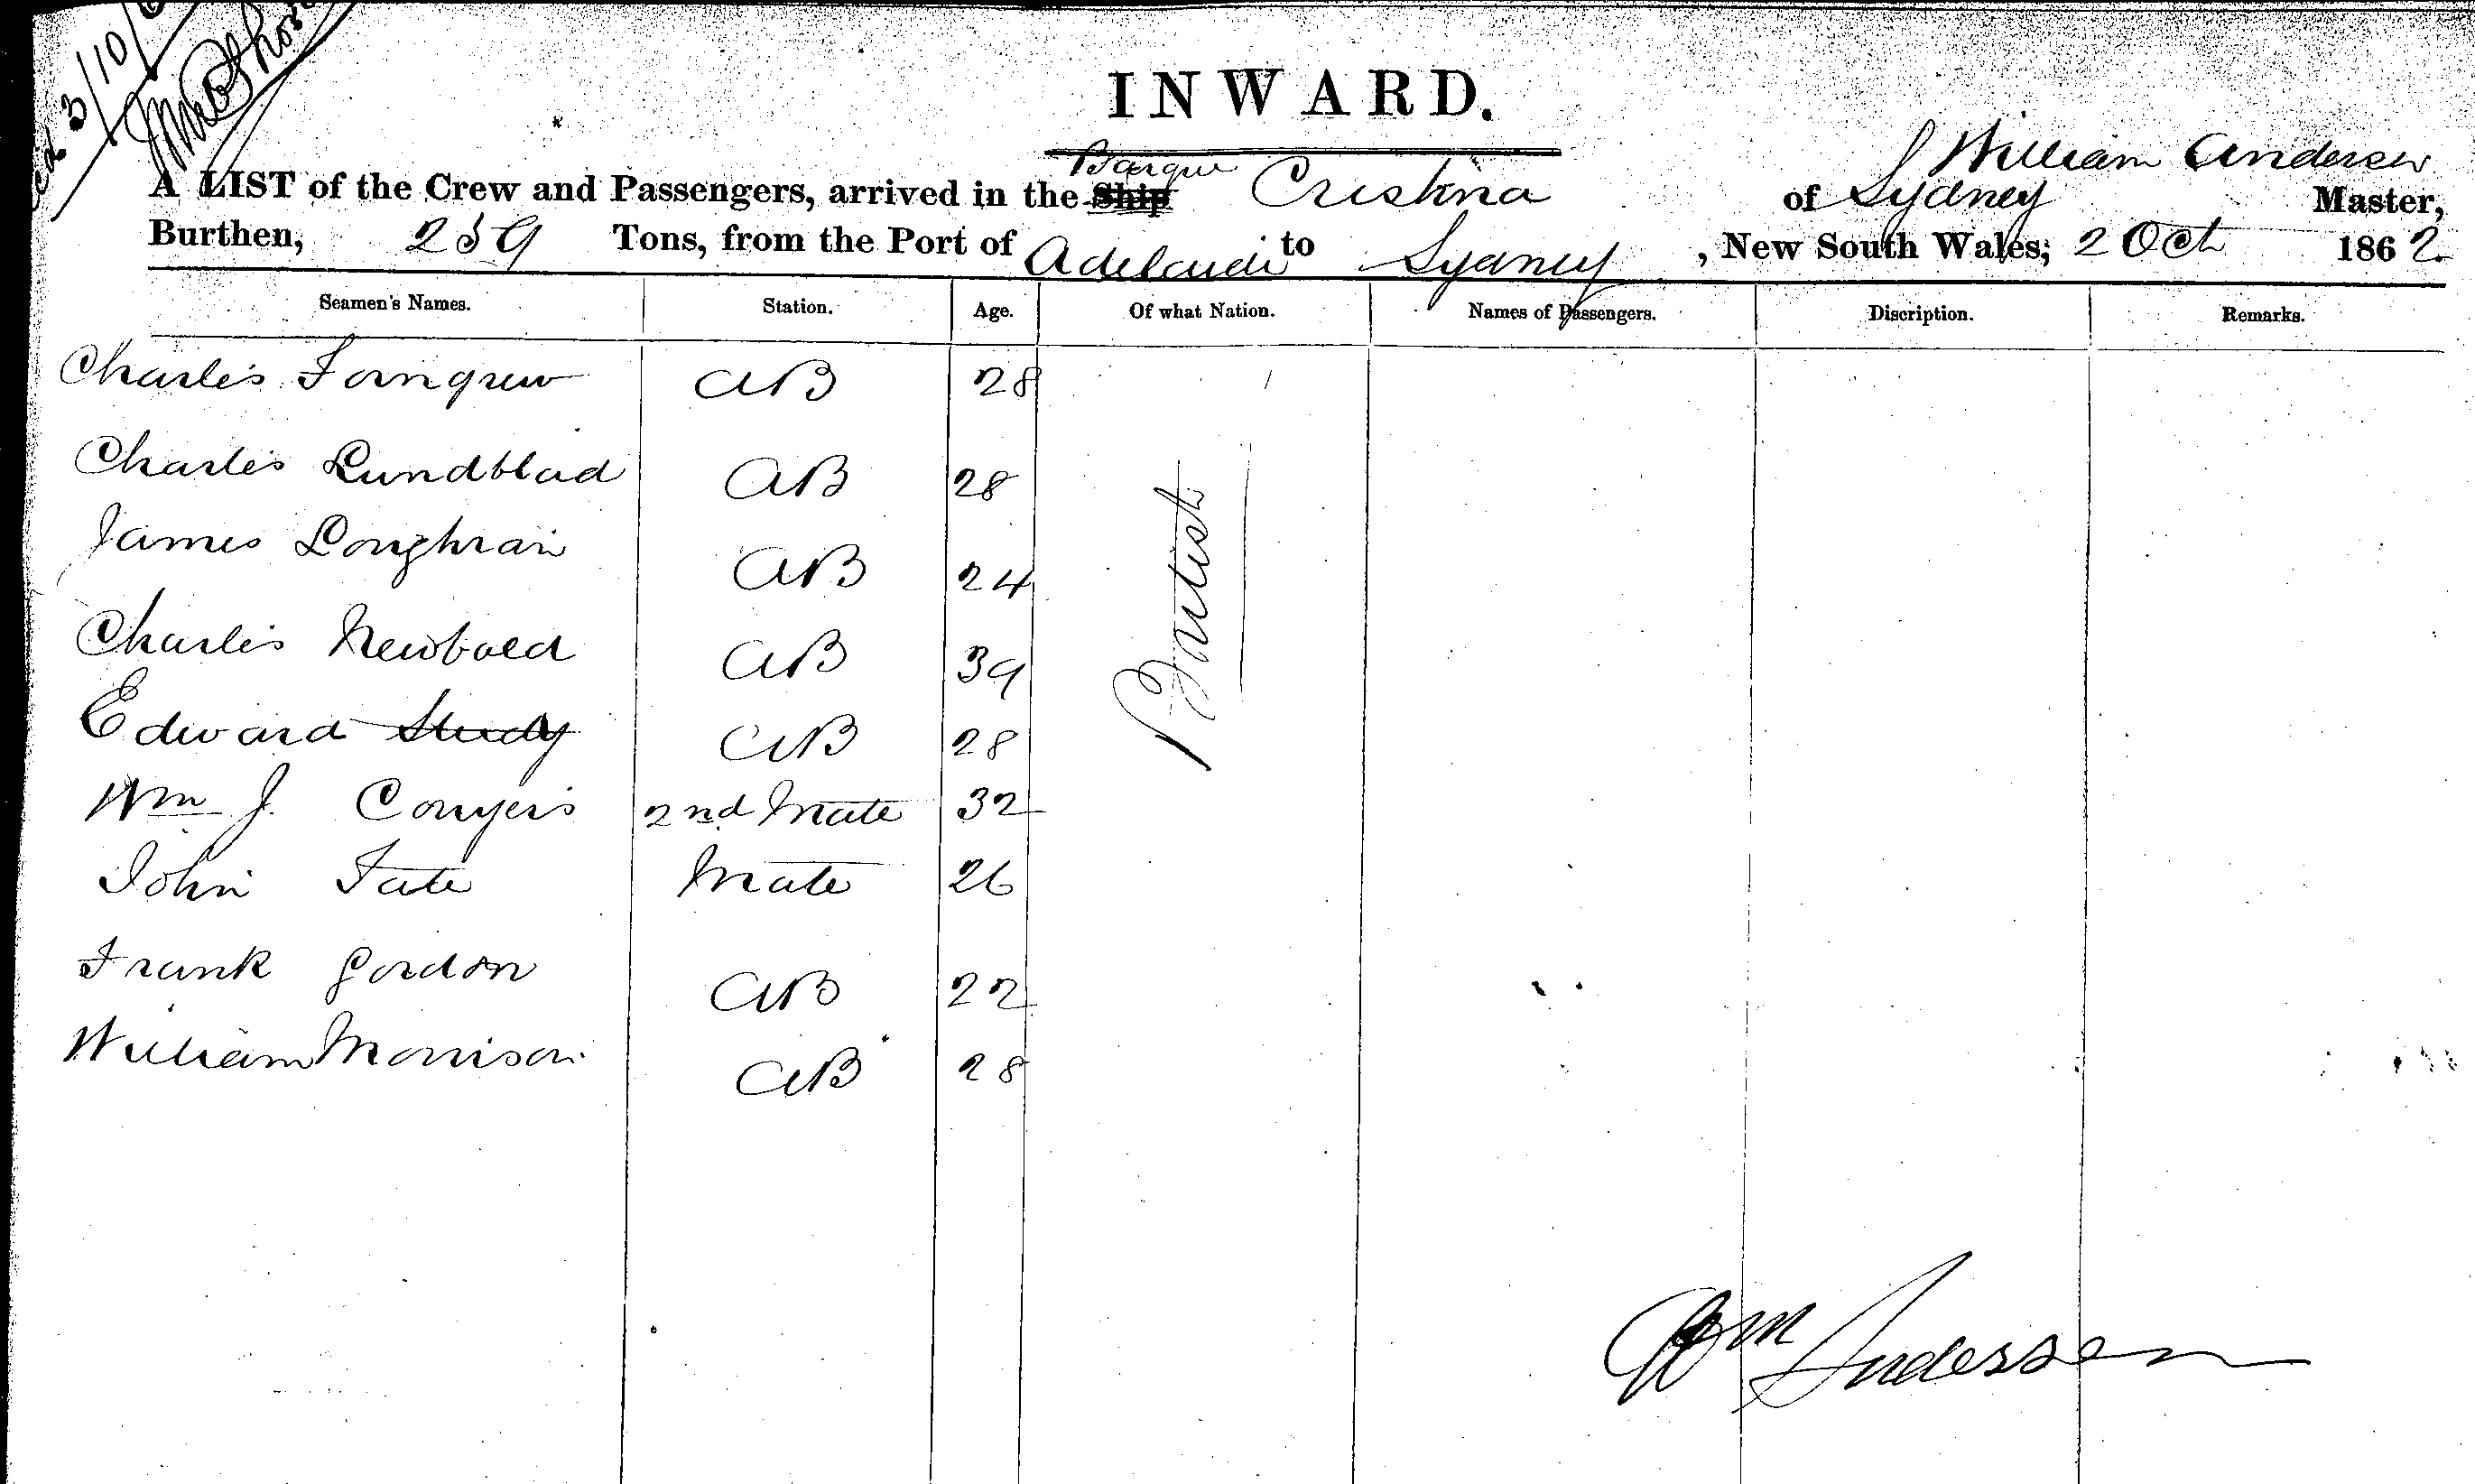 3/10/6
INWARD.
A LIST of the Crew and Passengers, arrived in the Ship Barque Cristina of Sydney William Andersen Master,
Burthen, 259 Tons, from the Port of Adelaide to Sydney, New South Wales; 2 Oct 1862.
Seamen's Names. Station. Age. Of what Nation. Names of Passengers. Discription. Remarks.
Charles AB 28
Charles Lundblad AB 28
James Loughran AB 24
Charles Newbold AB 39
Edward Study AB 28
Wm J. Conyers 2nd Mate 32
John Tate Mate 26
Frank Gordon AB 22
William Morrison AB 28
British
Wm Anderssen